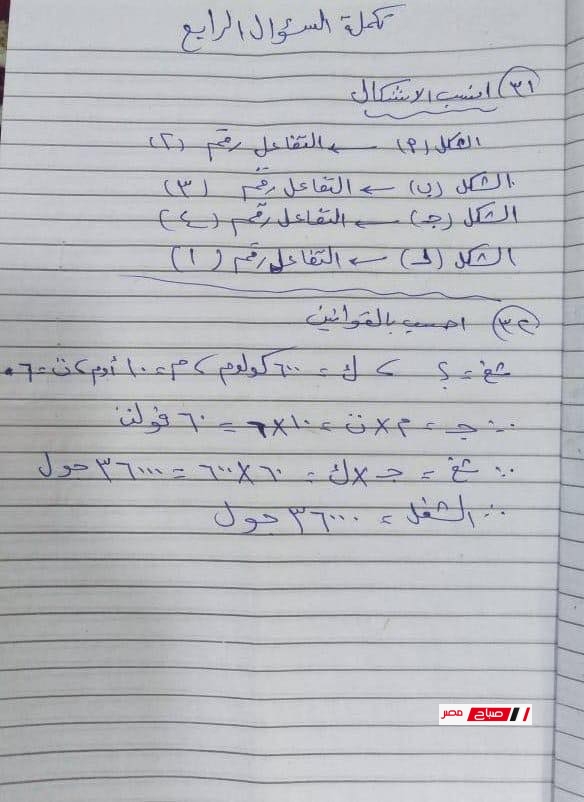 تكملة السؤال الرابع
(٣١) انسب الاشكال
الشكل (م) ← التفاعل رقم (٢)
الشكل (ب) ← التفاعل رقم (٣)
الشكل (جـ) ← التفاعل رقم (٤)
الشكل (د) ← التفاعل رقم (١)
(٣٢) احسب بالقوانين
شغ = ؟ > ك = ٦٠٠ كولوم > م = ١٠ أوم > ت = ٦
∴ جـ = م × ت = ١٠ × ٦ = ٦٠ فولت
∴ شغ = جـ × ك = ٦٠ × ٦٠٠ = ٣٦٠٠٠ جول
∴ الشغل = ٣٦٠٠٠ جول
صباح مصر